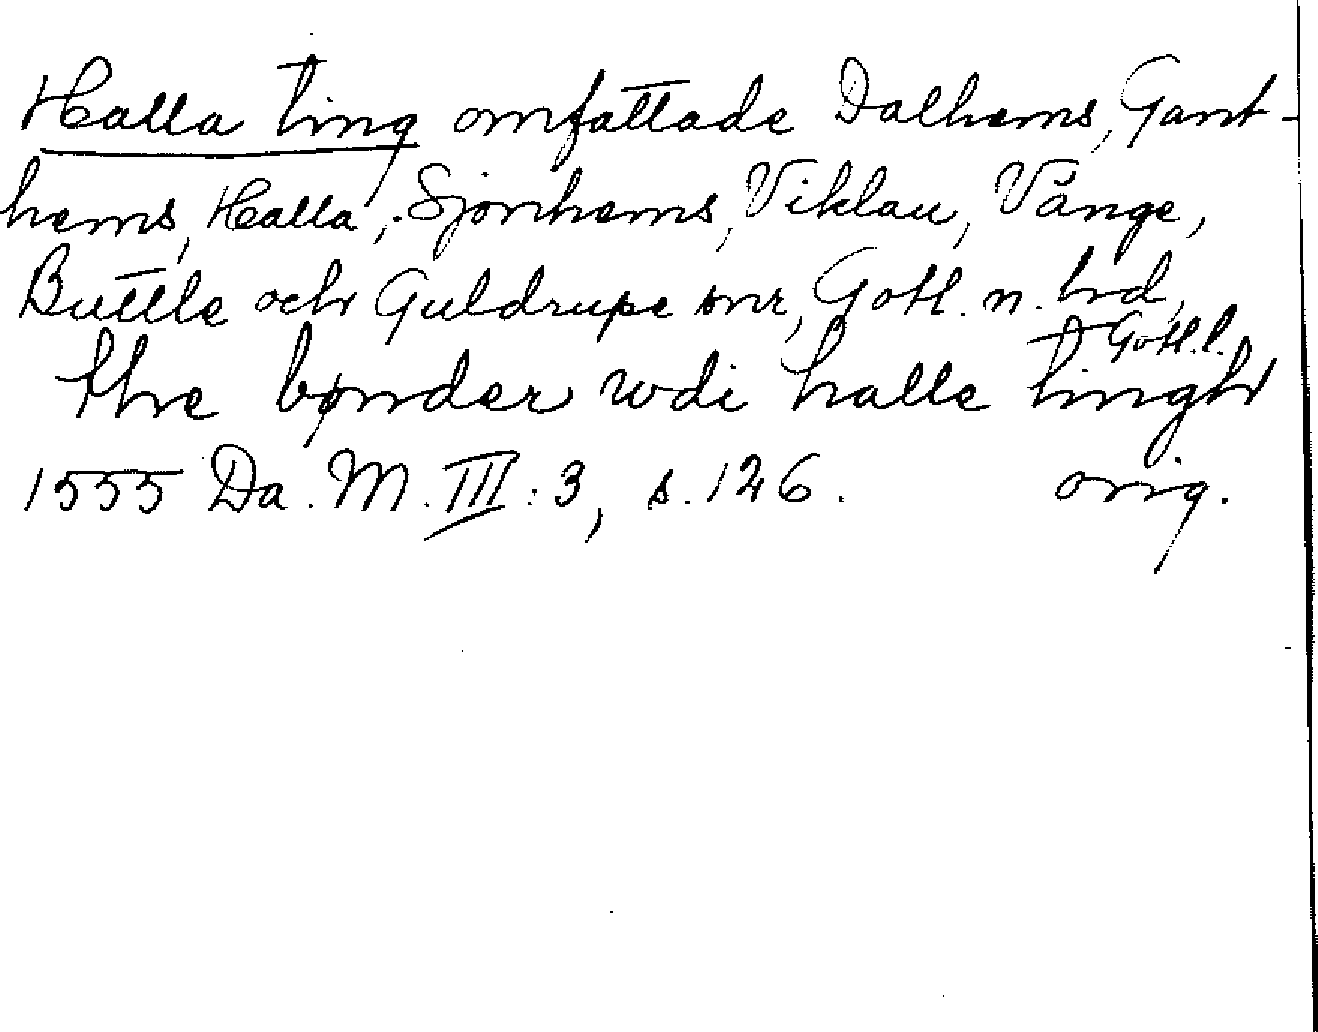 Halla ting omfattade Dalhems, Gant-
hems, Halla, Sjonhems, Viklau, Vänge,
Buttle och Guldrupe snr, Gotl. n. hrd,
Gotl. l.
thre bønder wdi halle tingh
1555 Da. M. III:3, s. 126. orig.